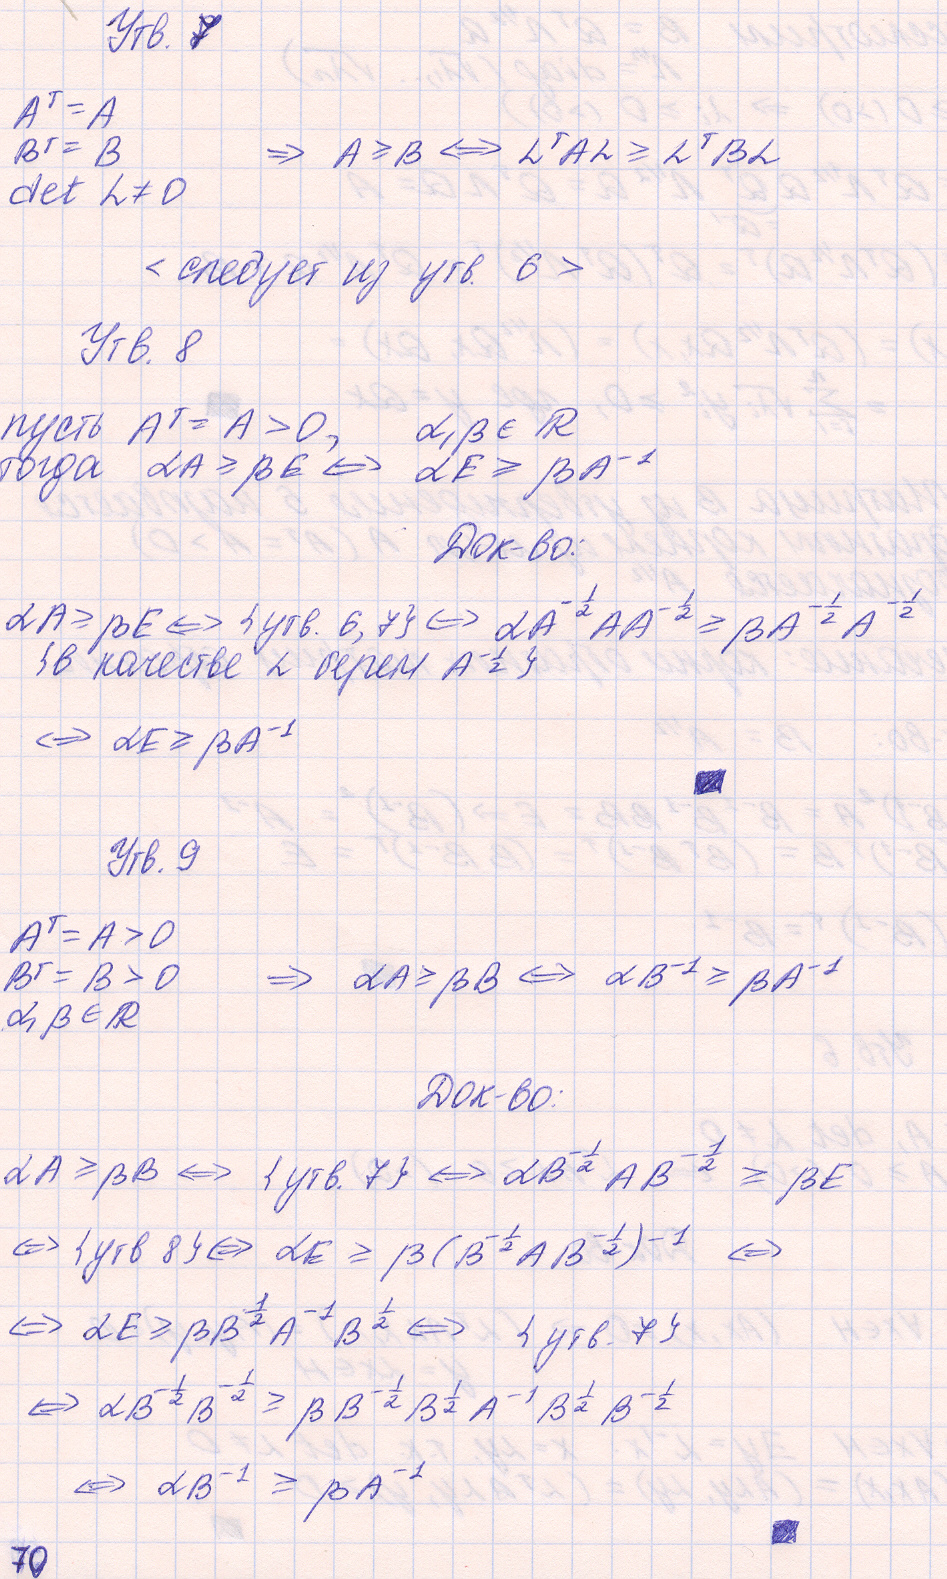 Утв. 7
Aᵀ = A
Bᵀ = B ⇒ A ≥ B ⟺ LᵀAL ≥ LᵀBL
det L ≠ 0
< следует из утв. 6 >
Утв. 8
пусть Aᵀ = A > 0, α, β ∈ ℝ
тогда αA ≥ βE ⟺ αE ≥ βA⁻¹
Док-во:
αA ≥ βE ⟺ {утв. 6, 7} ⟺ αA^{-1/2}AA^{-1/2} ≥ βA^{-1/2}A^{-1/2}
{в качестве L берем A^{-1/2}}
⟺ αE ≥ βA⁻¹
Утв. 9
Aᵀ = A > 0
Bᵀ = B > 0 ⇒ αA ≥ βB ⟺ αB⁻¹ ≥ βA⁻¹
α, β ∈ ℝ
Док-во:
αA ≥ βB ⟺ {утв. 7} ⟺ αB^{-1/2}AB^{-1/2} ≥ βE
⟺ {утв 8} ⟺ αE ≥ β(B^{-1/2}AB^{-1/2})⁻¹ ⟺
⟺ αE ≥ βB^{1/2}A⁻¹B^{1/2} ⟺ {утв. 7}
⟺ αB^{-1/2}B^{-1/2} ≥ βB^{-1/2}B^{1/2}A⁻¹B^{1/2}B^{-1/2}
⟺ αB⁻¹ ≥ βA⁻¹
70